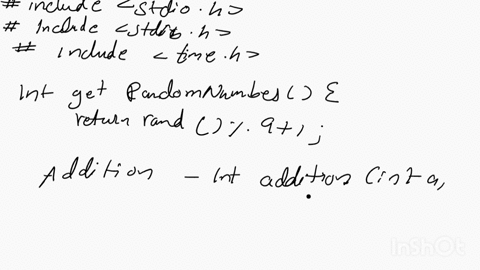 # include <stdio.h>
# Include <stdlib.h>
# include <time.h>
Int get RandomNumbes() {
return rand () % 9+1;
Addition - Int addition (int a,
InShOt